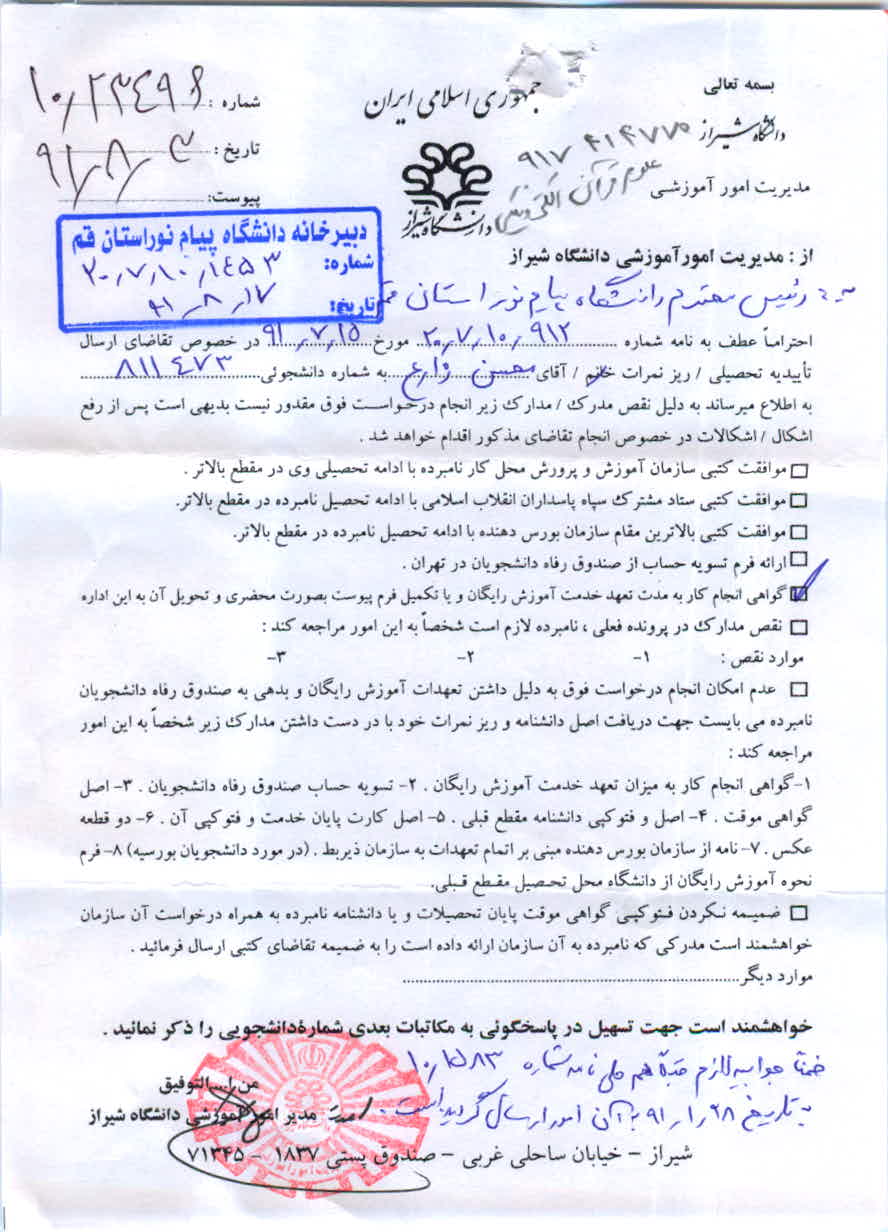 بسمه تعالی
جمهوری اسلامی ایران
دانشگاه شیراز
مدیریت امور آموزشی
شماره : ۱۰٫۲۳۴۹۶
تاریخ : ۹۱٫۸٫۳
پیوست:
۹۱۷ ۴۱۴۷۷۵
علوم قرآن الکترونیکی
دانشگاه شیراز
دبیرخانه دانشگاه پیام نور استان قم
شماره: ۲۰٫۷٫۱۰٫۱۴۵۳
تاریخ: ۹۱٫۸٫۱۷
از : مدیریت امور آموزشی دانشگاه شیراز
به : رئیس محترم دانشگاه پیام نور استان قم
احتراماً عطف به نامه شماره ۲۰٫۷٫۱۰٫۹۱۲ مورخ ۹۱٫۷٫۱۵ در خصوص تقاضای ارسال
تأییدیه تحصیلی / ریز نمرات خانم / آقای محسن زارع به شماره دانشجوئی ۸۱۱۴۷۳
به اطلاع میرساند به دلیل نقص مدرک / مدارک زیر انجام درخواست فوق مقدور نیست بدیهی است پس از رفع
اشکال / اشکالات در خصوص انجام تقاضای مذکور اقدام خواهد شد .
موافقت کتبی سازمان آموزش و پرورش محل کار نامبرده با ادامه تحصیلی وی در مقطع بالاتر .
موافقت کتبی ستاد مشترک سپاه پاسداران انقلاب اسلامی با ادامه تحصیل نامبرده در مقطع بالاتر.
موافقت کتبی بالاترین مقام سازمان بورس دهنده با ادامه تحصیل نامبرده در مقطع بالاتر.
ارائه فرم تسویه حساب از صندوق رفاه دانشجویان در تهران .
گواهی انجام کار به مدت تعهد خدمت آموزش رایگان و یا تکمیل فرم پیوست بصورت محضری و تحویل آن به این اداره
نقص مدارک در پرونده فعلی ، نامبرده لازم است شخصاً به این امور مراجعه کند :
موارد نقص : ۱- ۲- ۳-
عدم امکان انجام درخواست فوق به دلیل داشتن تعهدات آموزش رایگان و بدهی به صندوق رفاه دانشجویان
نامبرده می بایست جهت دریافت اصل دانشنامه و ریز نمرات خود با در دست داشتن مدارک زیر شخصاً به این امور
مراجعه کند :
۱-گواهی انجام کار به میزان تعهد خدمت آموزش رایگان . ۲- تسویه حساب صندوق رفاه دانشجویان . ۳- اصل
گواهی موقت . ۴- اصل و فتوکپی دانشنامه مقطع قبلی . ۵- اصل کارت پایان خدمت و فتوکپی آن . ۶- دو قطعه
عکس . ۷- نامه از سازمان بورس دهنده مبنی بر اتمام تعهدات به سازمان ذیربط . (در مورد دانشجویان بورسیه) ۸- فرم
نحوه آموزش رایگان از دانشگاه محل تحصیل مقطع قبلی.
ضمیمه نکردن فتوکپی گواهی موقت پایان تحصیلات و یا دانشنامه نامبرده به همراه درخواست آن سازمان
خواهشمند است مدرکی که نامبرده به آن سازمان ارائه داده است را به ضمیمه تقاضای کتبی ارسال فرمائید .
موارد دیگر
خواهشمند است جهت تسهیل در پاسخگوئی به مکاتبات بعدی شمارۀدانشجویی را ذکر نمائید .
ضمناً جوابیه لازم قبلاً هم طی نامه شماره ۱۰٫۱۵۸۳
به تاریخ ۹۱٫۱٫۲۸ به آن امور ارسال گردیده است.
من ا... التوفیق
مدیر امور آموزشی دانشگاه شیراز
شیراز - خیابان ساحلی غربی - صندوق پستی ۱۸۳۷ - ۷۱۳۴۵